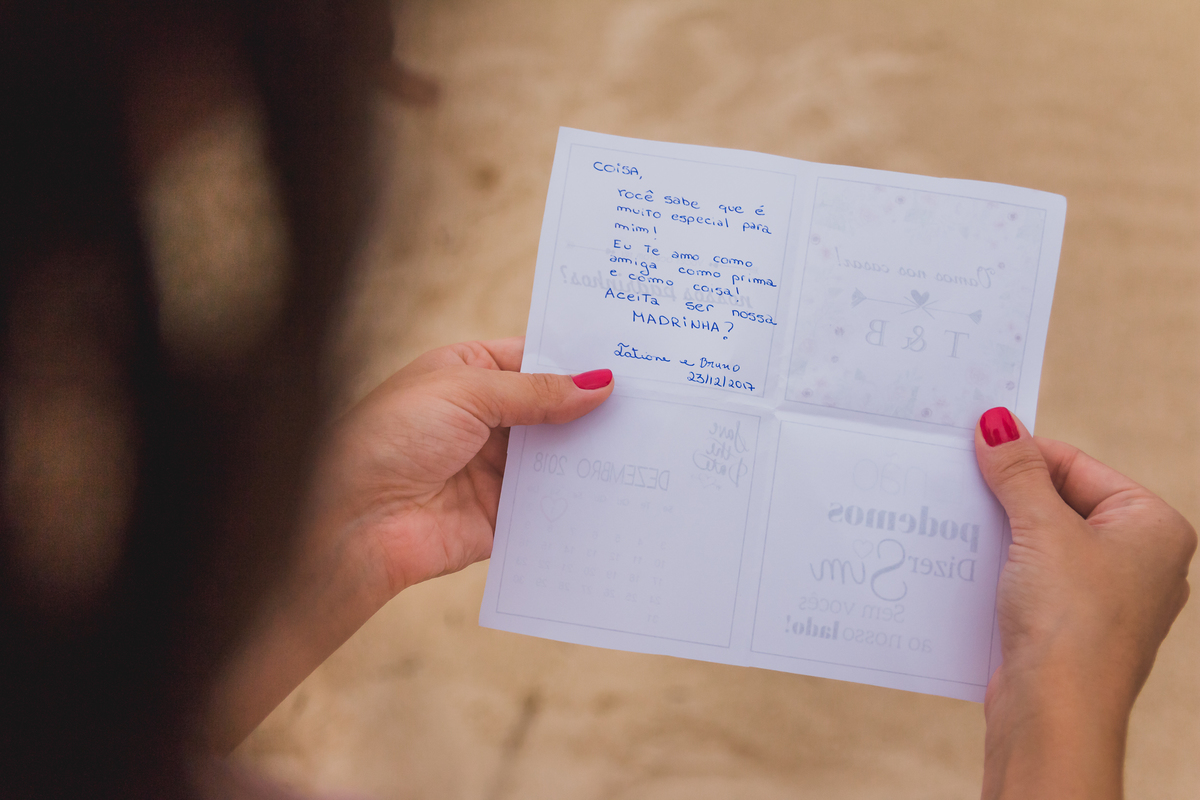 COISA,
você sabe que é
muito especial para
mim!
Eu te amo como
amiga como prima
e como coisa!
Aceita ser nossa
MADRINHA?
Tatiane e Bruno
23/12/2017
nossos padrinhos?
Vamos nos casar!
T & B
Save
the
Date
DEZEMBRO 2018
podemos
Dizer Sim
Sem vocês
ao nosso lado!